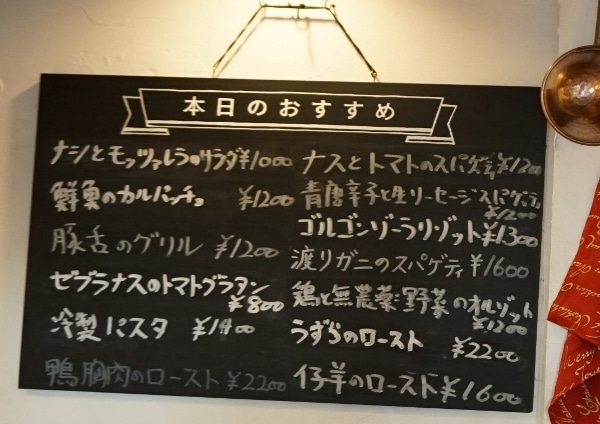 本日のおすすめ
ナシとモッツァレラのサラダ¥1000
鮮魚のカルパッチョ ¥1200
豚舌のグリル ¥1200
ゼブラナスのトマトグラタン
¥800
冷製パスタ ¥1400
鴨胸肉のロースト ¥2200
ナスとトマトのスパゲティ¥1200
青唐辛子と生ソーセージスパゲティ
¥1200
ゴルゴンゾーラリゾット¥1300
渡りガニのスパゲティ¥1600
鶏と無農薬野菜のオルゾット
¥1200
うずらのロースト
¥2200
仔羊のロースト¥1600